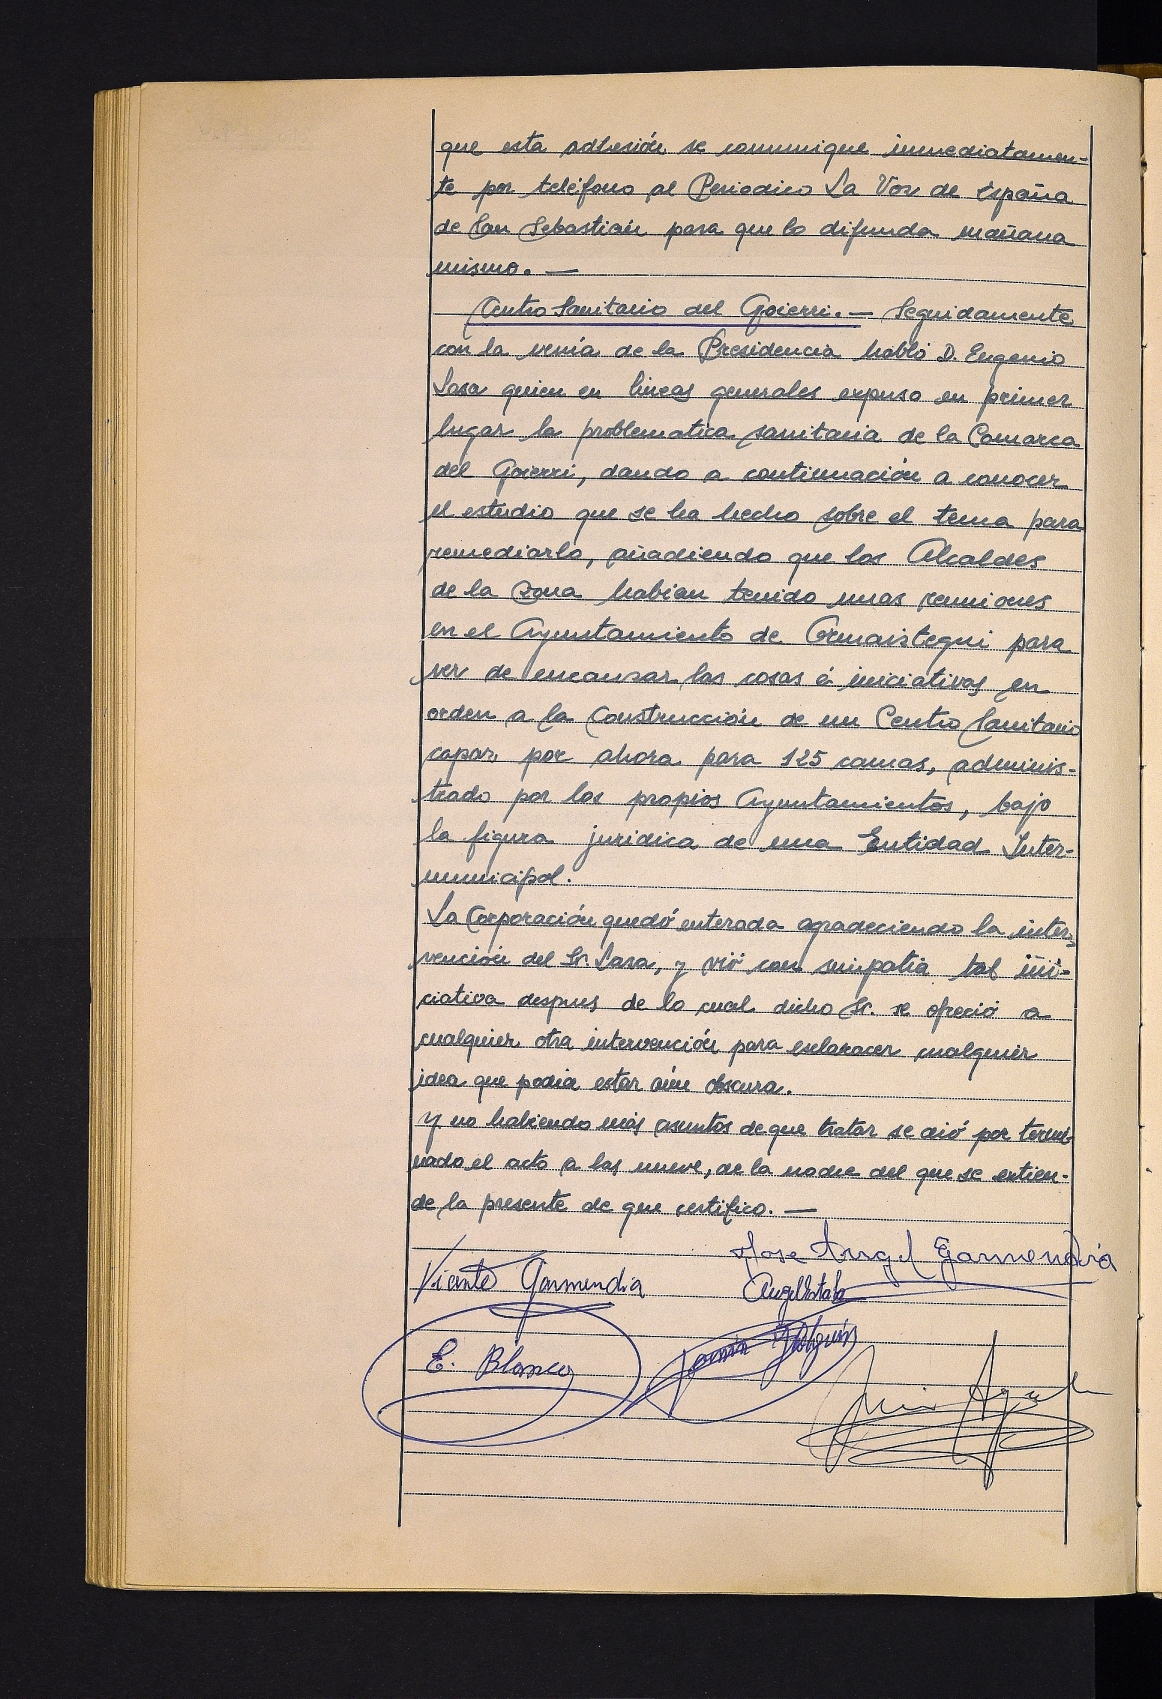 que esta adhesión se comunique inmediatamen-
te por teléfono al Periodico La Voz de España
de San Sebastián para que lo difunda mañana
mismo. —
Centro Sanitario del Goierri. — Seguidamente
con la venia de la Presidencia habló D. Eugenio
Lasa quien en lineas generales expuso en primer
lugar la problematica sanitaria de la Comarca
del Goierri, dando a continuación a conocer
el estudio que se ha hecho sobre el tema para
remediarlo, añadiendo que los Alcaldes
de la zona habian tenido unas reuniones
en el Ayuntamiento de Ormaiztegui para
ver de encauzar las cosas é iniciativas en
orden a la Construcción de un Centro Sanitario
capaz, por ahora para 125 camas, adminis-
trado por los propios Ayuntamientos, bajo
la figura juridica de una Entidad Inter-
municipal.
La Corporación quedó enterada agradeciendo la inter-
vención del Sr. Lasa, y vió con simpatia tal ini-
ciativa despues de lo cual dicho Sr. se ofreció a
cualquier otra intervención para esclarecer cualquier
idea que podia estar aún obscura.
Y no habiendo más asuntos de que tratar se dió por termi-
nado el acto a las nueve, de la noche del que se extien-
de la presente de que certifico. —
Jose Angel Garmendia
Vicente Garmendia
E. Blanco